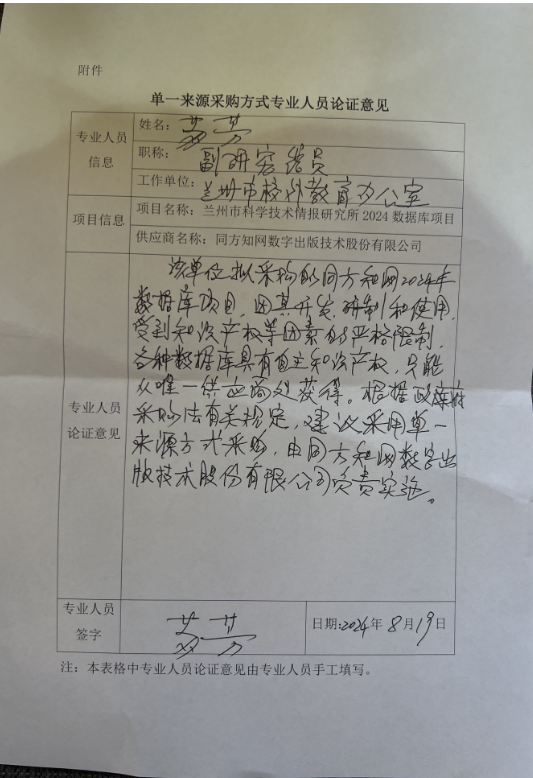 附件
单一来源采购方式专业人员论证意见
专业人员
信息
姓名：
职称： 副研究馆员
工作单位：兰州市校外教育办公室
项目信息
项目名称：兰州市科学技术情报研究所2024数据库项目
供应商名称：同方知网数字出版技术股份有限公司
专业人员
论证意见
该单位拟采购的同方知网2024年
数据库项目，因其开发、研制和使用，
受到知识产权等因素的严格限制，
各种数据库具有自主知识产权，只能
从唯一供应商处获得。根据政府
采购法有关规定，建议采用单一
来源方式采购，由同方知网数字出
版技术股份有限公司负责实施。
专业人员
签字
日期：2024年8月19日
注：本表格中专业人员论证意见由专业人员手工填写。